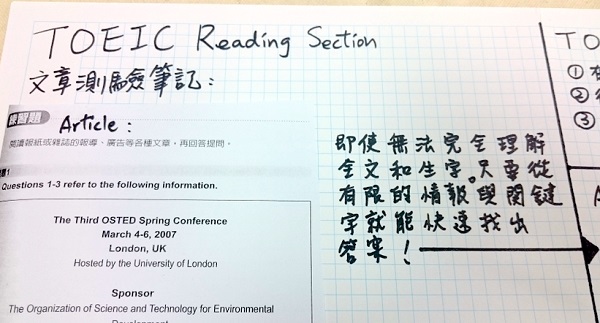 TOEIC Reading Section
文章測驗筆記：
練習題 Article：
閱讀報紙或雜誌的報導、廣告等各種文章，再回答提問。
Questions 1-3 refer to the following information.
The Third OSTED Spring Conference
March 4-6, 2007
London, UK
Hosted by the University of London
Sponsor
The Organization of Science and Technology for Environmental
Development
即使無法完全理解
全文和生字。只要從
有限的情報與關鍵
字就能快速找出
答案！
TO
①
②
③